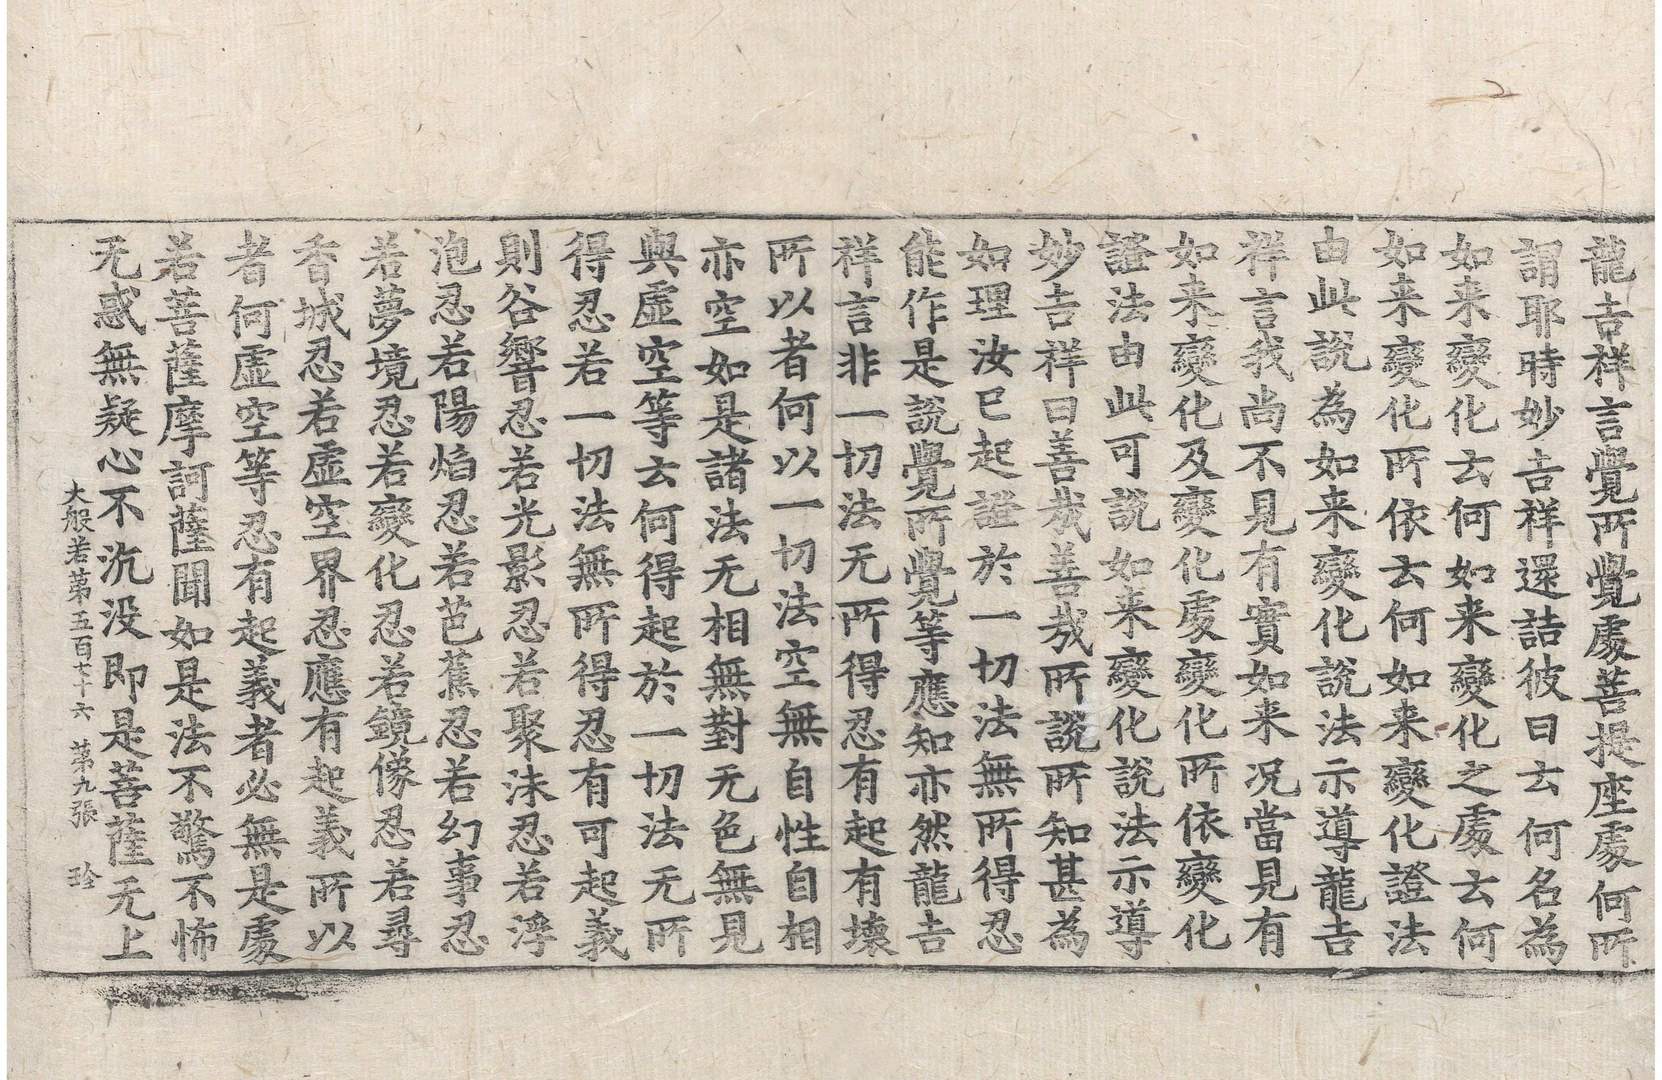 龍吉祥言覺所覺處菩提座處何所
謂耶時妙吉祥還詰彼曰云何名為
如来變化云何如来變化之處云何
如来變化所依云何如来變化證法
由此說為如来變化說法示導龍吉
祥言我尚不見有實如来况當見有
如来變化及變化處變化所依變化
證法由此可說如来變化說法示導
妙吉祥曰善哉善哉所說所知甚為
如理汝已起證於一切法無所得忍
能作是說覺所覺等應知亦然龍吉
祥言非一切法无所得忍有起有壞
所以者何以一切法空無自性自相
亦空如是諸法无相無對无色無見
與虛空等云何得起於一切法无所
得忍若一切法無所得忍有可起義
則谷響忍若光影忍若聚沫忍若浮
泡忍若陽焰忍若芭蕉忍若幻事忍
若夢境忍若變化忍若鏡像忍若尋
香城忍若虛空界忍應有起義所以
者何虛空等忍有起義者必無是處
若菩薩摩訶薩聞如是法不驚不怖
无惑無疑心不沉没即是菩薩无上
大般若第五百七十六 第九張 玲